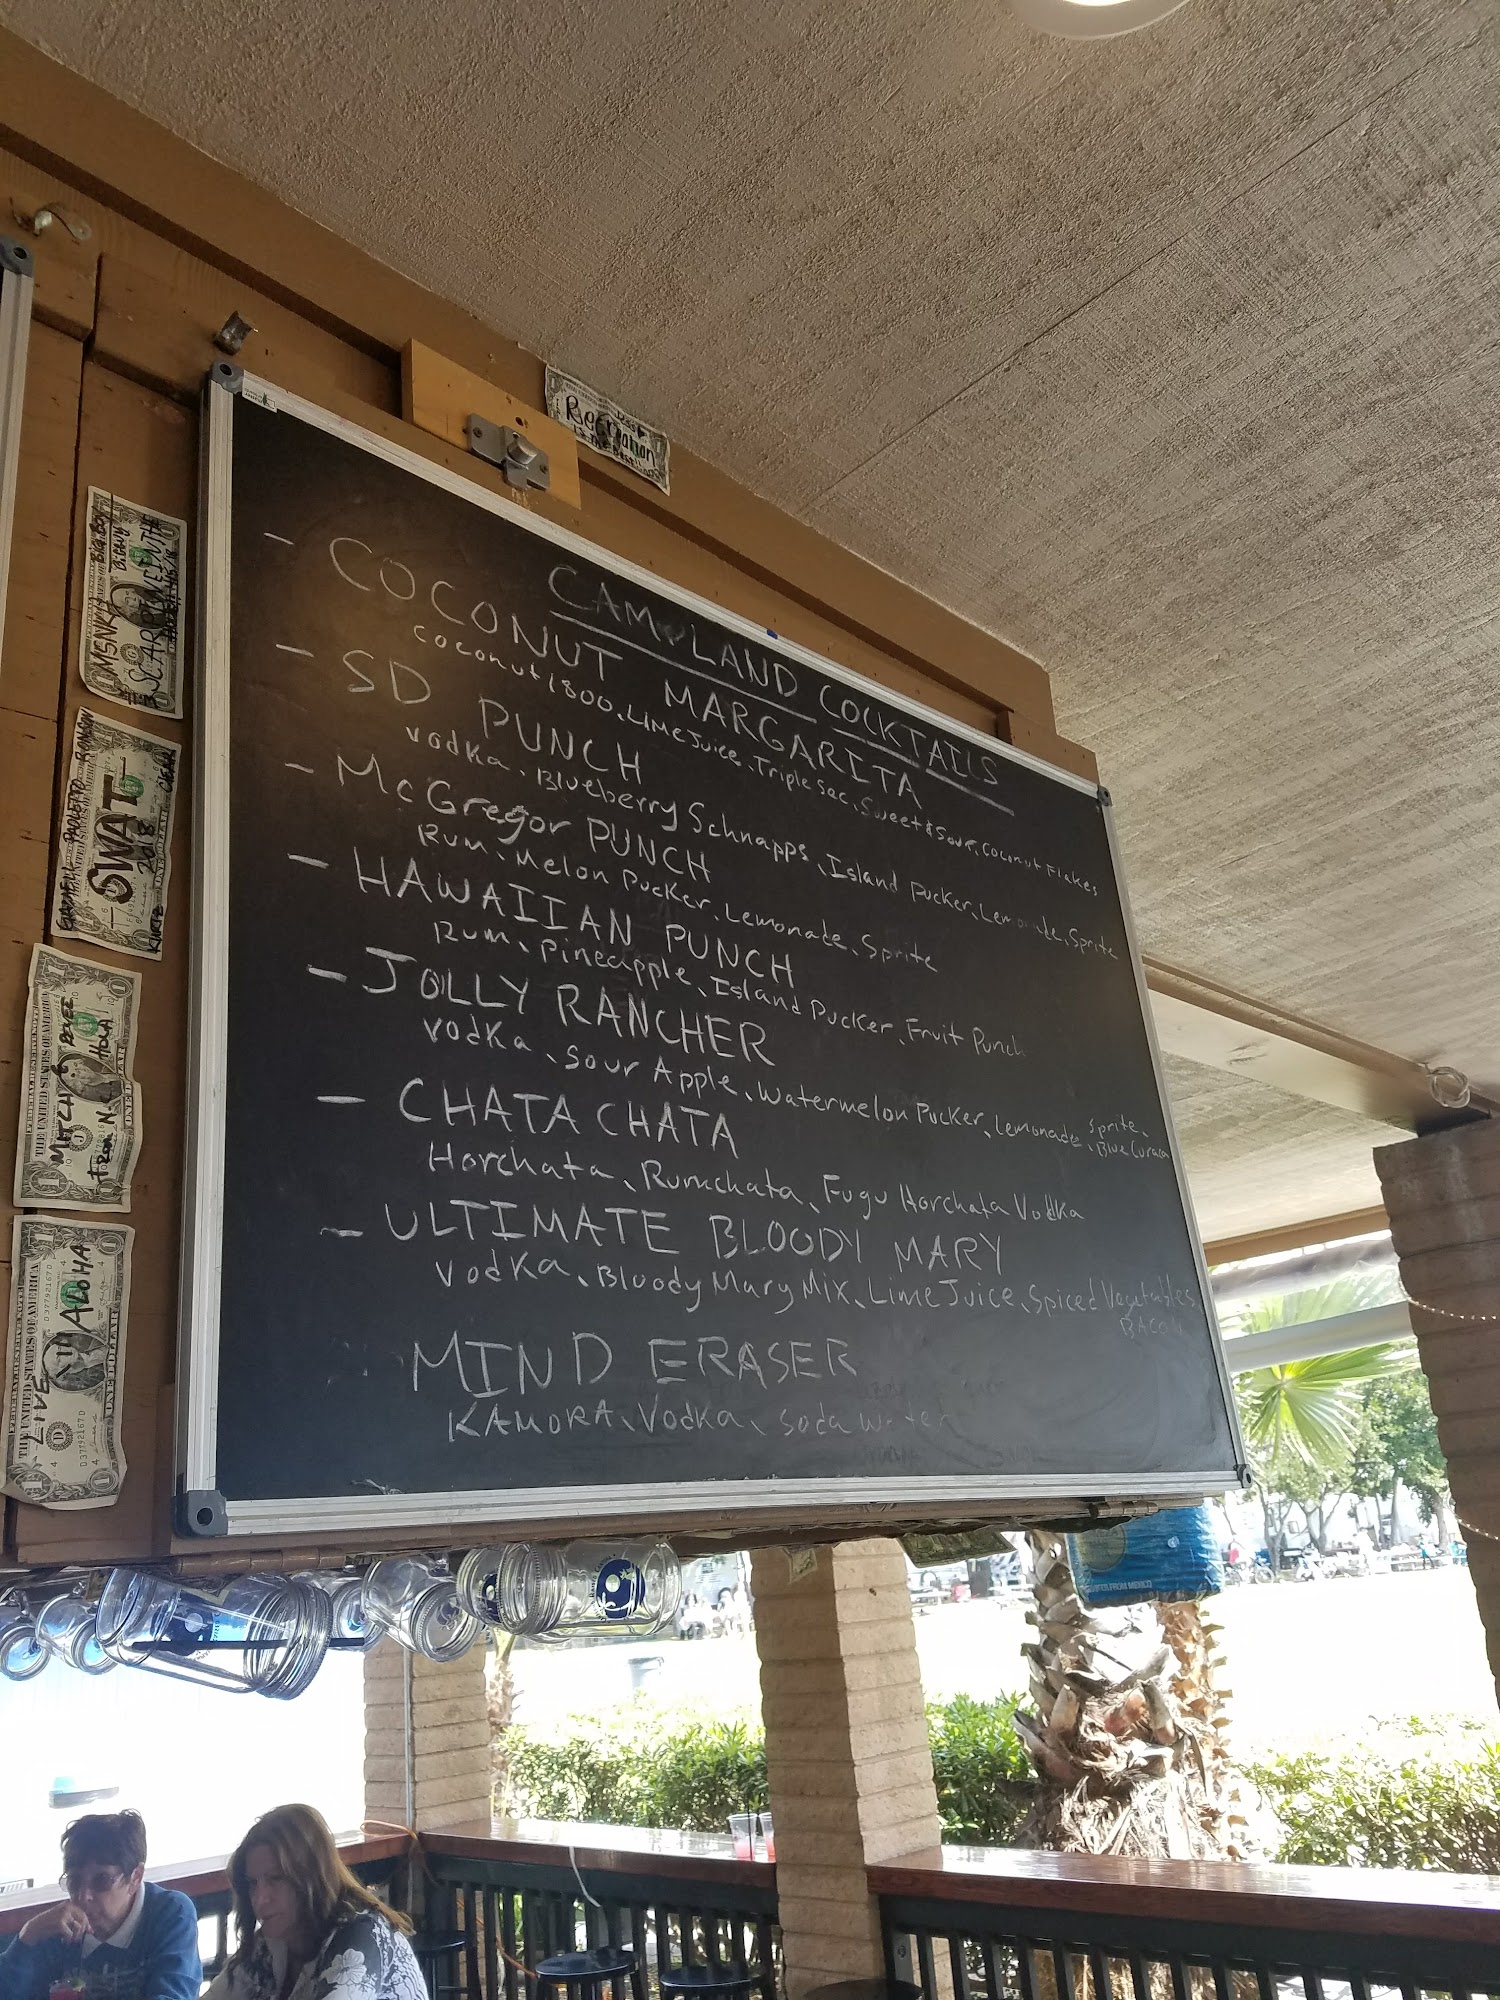 CAMPLAND COCKTAILS
- COCONUT MARGARITA
coconut 1800, Lime Juice, Triple Sec, Sweet & Sour, Coconut Flakes
- SD PUNCH
Vodka, Blueberry Schnapps, Island Pucker, Lemonade, Sprite
- McGregor PUNCH
Rum, Melon Pucker, Lemonade, Sprite
- HAWAIIAN PUNCH
Rum, Pineapple, Island Pucker, Fruit Punch
- JOLLY RANCHER
Vodka, Sour Apple, Watermelon Pucker, Lemonade, Sprite, Blue Curacao
- CHATA CHATA
Horchata, Rumchata, Fugu Horchata Vodka
- ULTIMATE BLOODY MARY
Vodka, Bloody Mary Mix, Lime Juice, Spiced Vegetables,
BACON
MIND ERASER
KAMORA, Vodka, Soda Water
SWAT
2018
MITCH & RENEE
THE UNITED STATES OF AMERICA
ONE DOLLAR
LIVE ALOHA
FEDERAL RESERVE NOTE
THE UNITED STATES OF AMERICA
D37792167D
ONE DOLLAR